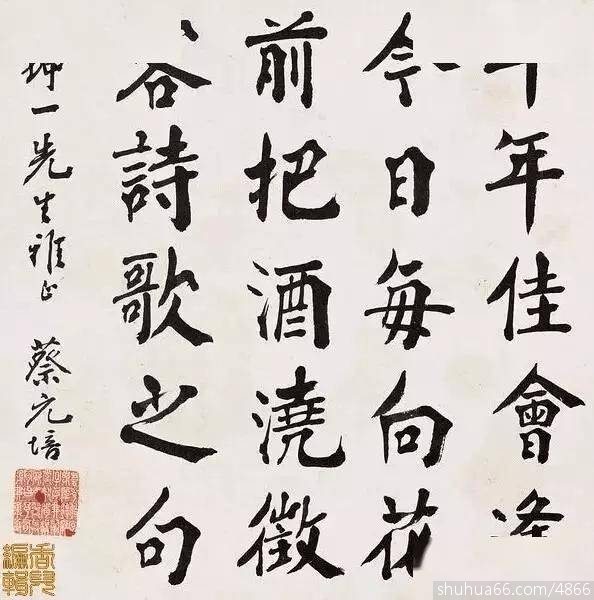 年佳會
今日每向花
前把酒澆徵
谷詩歌之句
坤一先生雅正 蔡元培
shuhua66.com/4866